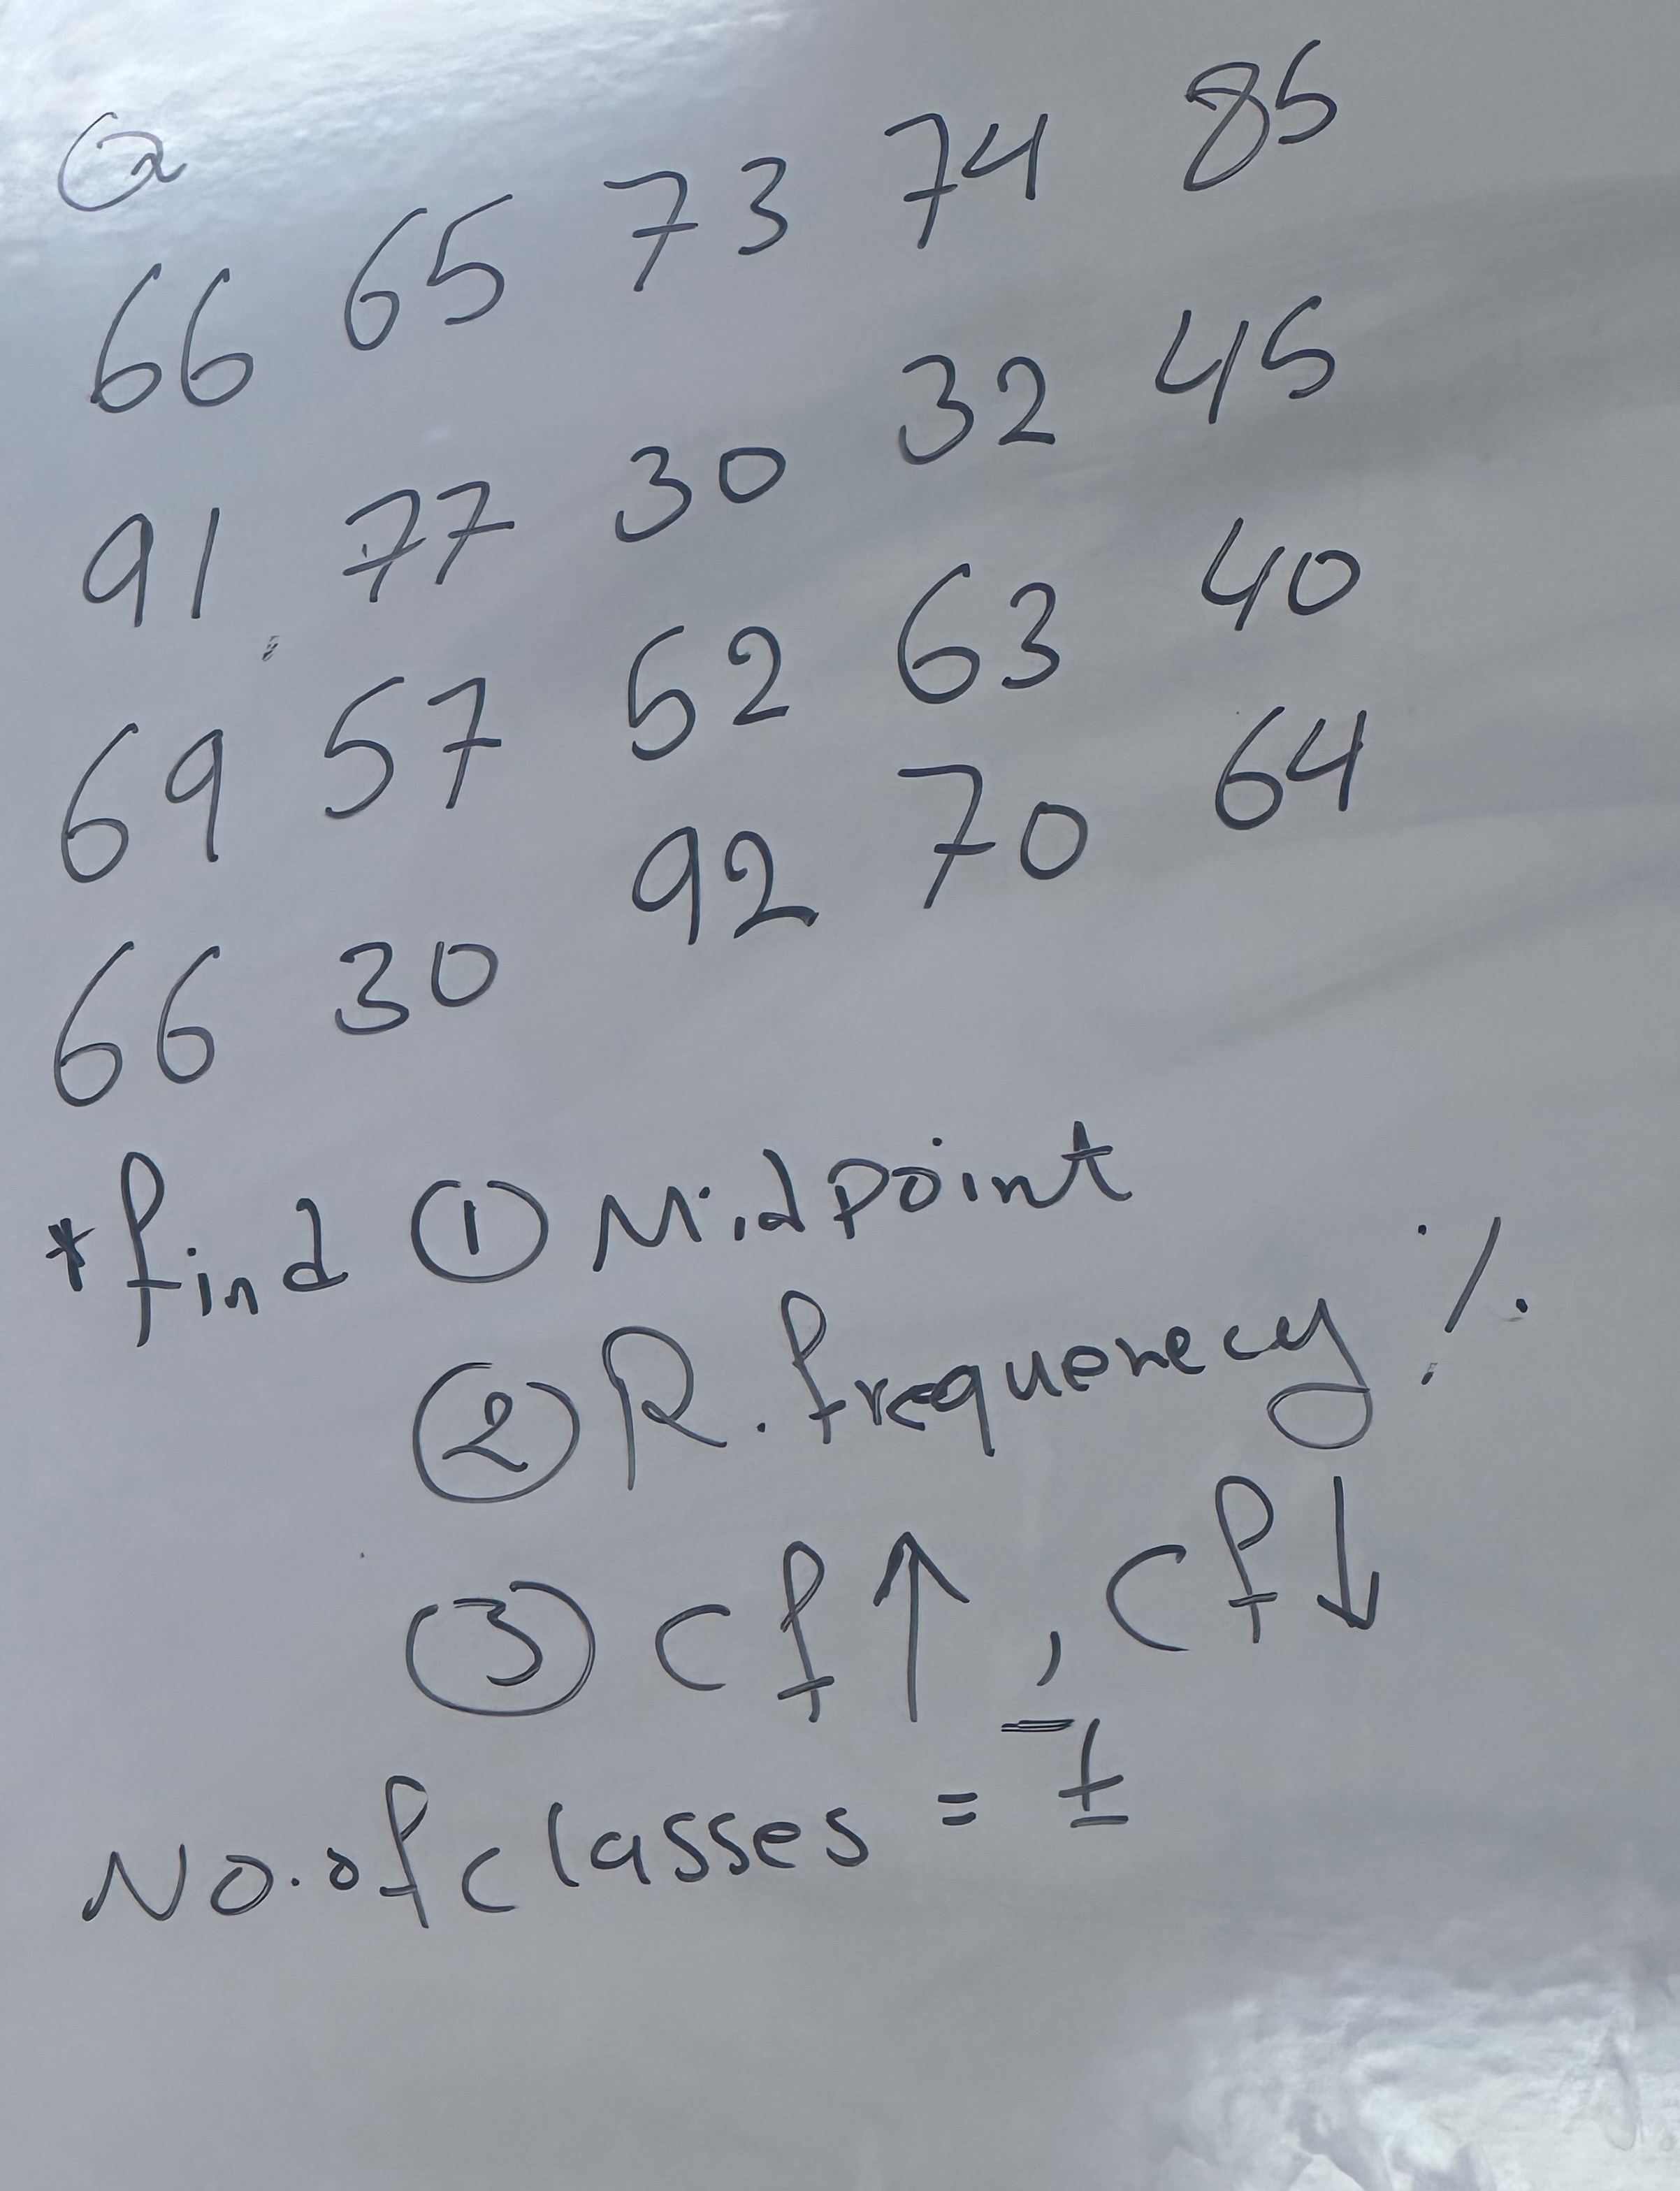 Q
66 65 73 74 85
91 77 30 32 45
69 57 52 63 40
66 30 92 70 64
*find ① Midpoint
② R. frequenecy %
③ cf↑, cf↓
No. of classes = 7